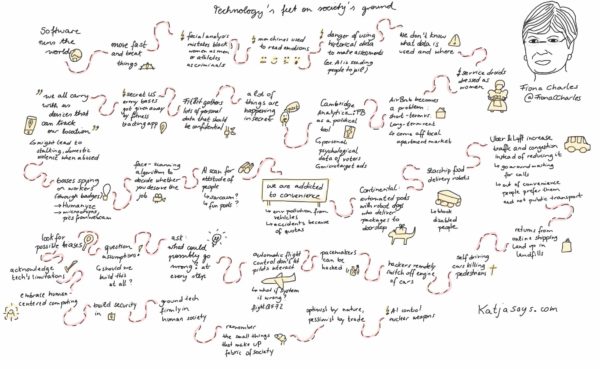 Technology's feet on society's ground
Software
runs the
world
move fast
and break
things
facial analysis
mistakes black
women as men
or athletes
as criminals
machines used
to read emotions
danger of using
historical data
to make assessments
(or AI is sending
people to jail)
we don't know
what data is
used and where
Fiona Charles
@FionaCCharles
service droids
dressed as
women
AirBnB becomes a
problem:
short-term vs.
long-term rent
& comm. off local
apartment market
Cambridge
Analytica + FB
as a political
tool
personal
psychological
data of voters
microtarget ads
a lot of
things are
happening
in secret
FitBit gathers
lots of personal
data that should
be confidential
secret US
army bases
got given away
by fitness
tracking app
"we all carry
with us
devices that
can track
our location"
might lead to
stalking, domestic
violence when abused
bosses spying
on workers
(through badges)
→ Humanyze
→ microphones,
face-scanning
algorithm to
decide whether
you deserve the
job
AI scan for
attitude of
people
→ sarcasm?
→ fun pods
we are addicted
to convenience
→ env. pollution from
vehicles
→ accidents because
of quotas
Continental:
automated pods
with robot dogs
who deliver
packages to
doorstep
Starship food
delivery robots
→ block
disabled
people
Uber & Lyft increase
traffic and congestion
instead of reducing it
→ go around waiting
for calls
→ out of convenience
people prefer them
and not private transport
returns from
online shopping
land up in
landfills
self driving
cars killing
pedestrians
hackers remotely
switch off engine
of cars
pacemakers
can be
hacked
automatic flight
control don't let
pilots interact
→ what if system
is wrong?
ask:
what could
possibly go
wrong? at
every stage
question
assumptions
should we
build this
at all?
look for
possible biases
acknowledge
tech's limitations
embrace human-
centered computing
build security
in
ground tech
firmly in
human society
remember
the small things
that make up
fabric of society
optimist by nature,
pessimist by trade
AI control
nuclear weapons
Katjasays.com